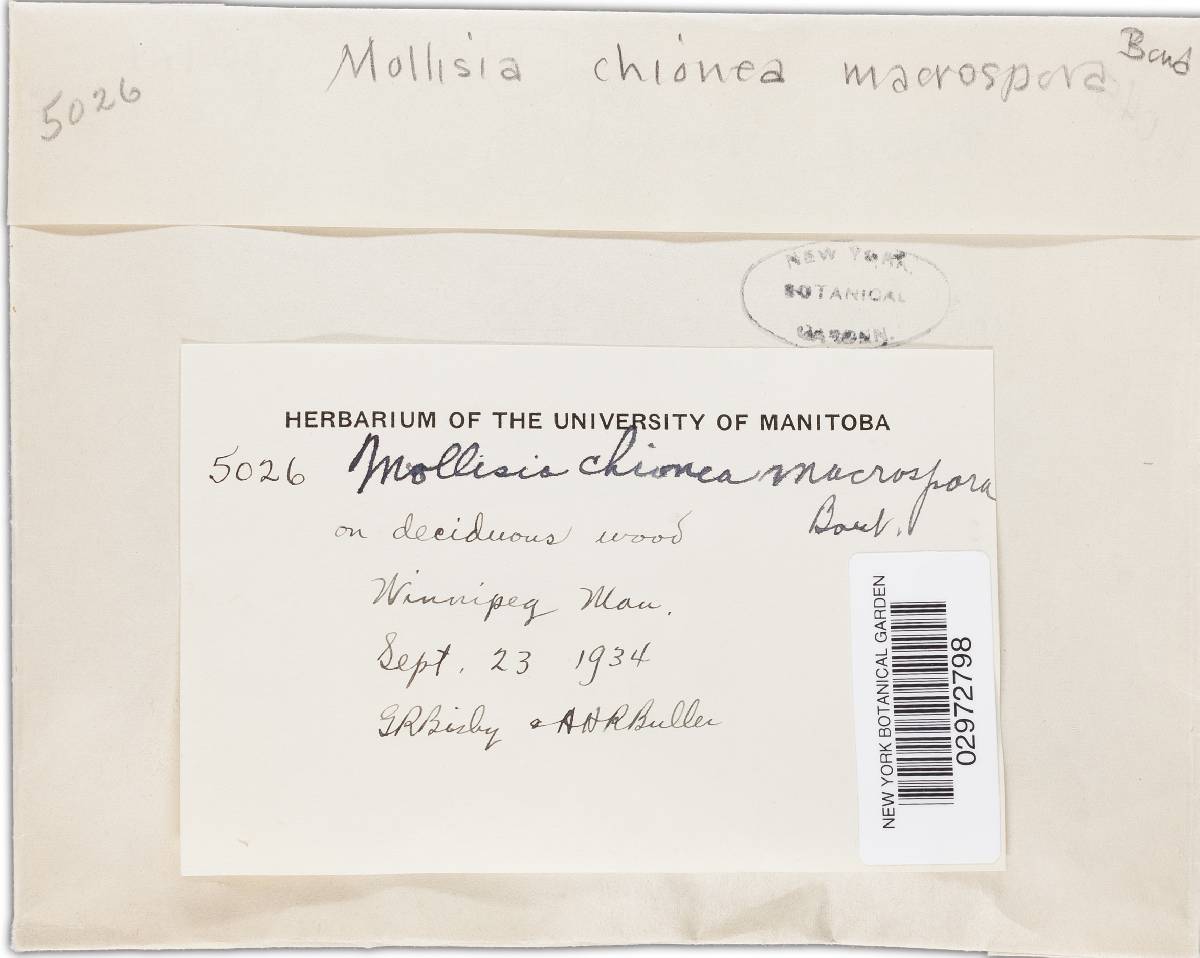 5026 Mollisia chionea macrospora Boud
NEW YORK
BOTANICAL
GARDEN.
HERBARIUM OF THE UNIVERSITY OF MANITOBA
5026 Mollisia chionea macrospora
Boud.
on deciduous wood
Winnipeg Man.
Sept. 23 1934
GRBisby & AHRBuller
NEW YORK BOTANICAL GARDEN
02972798